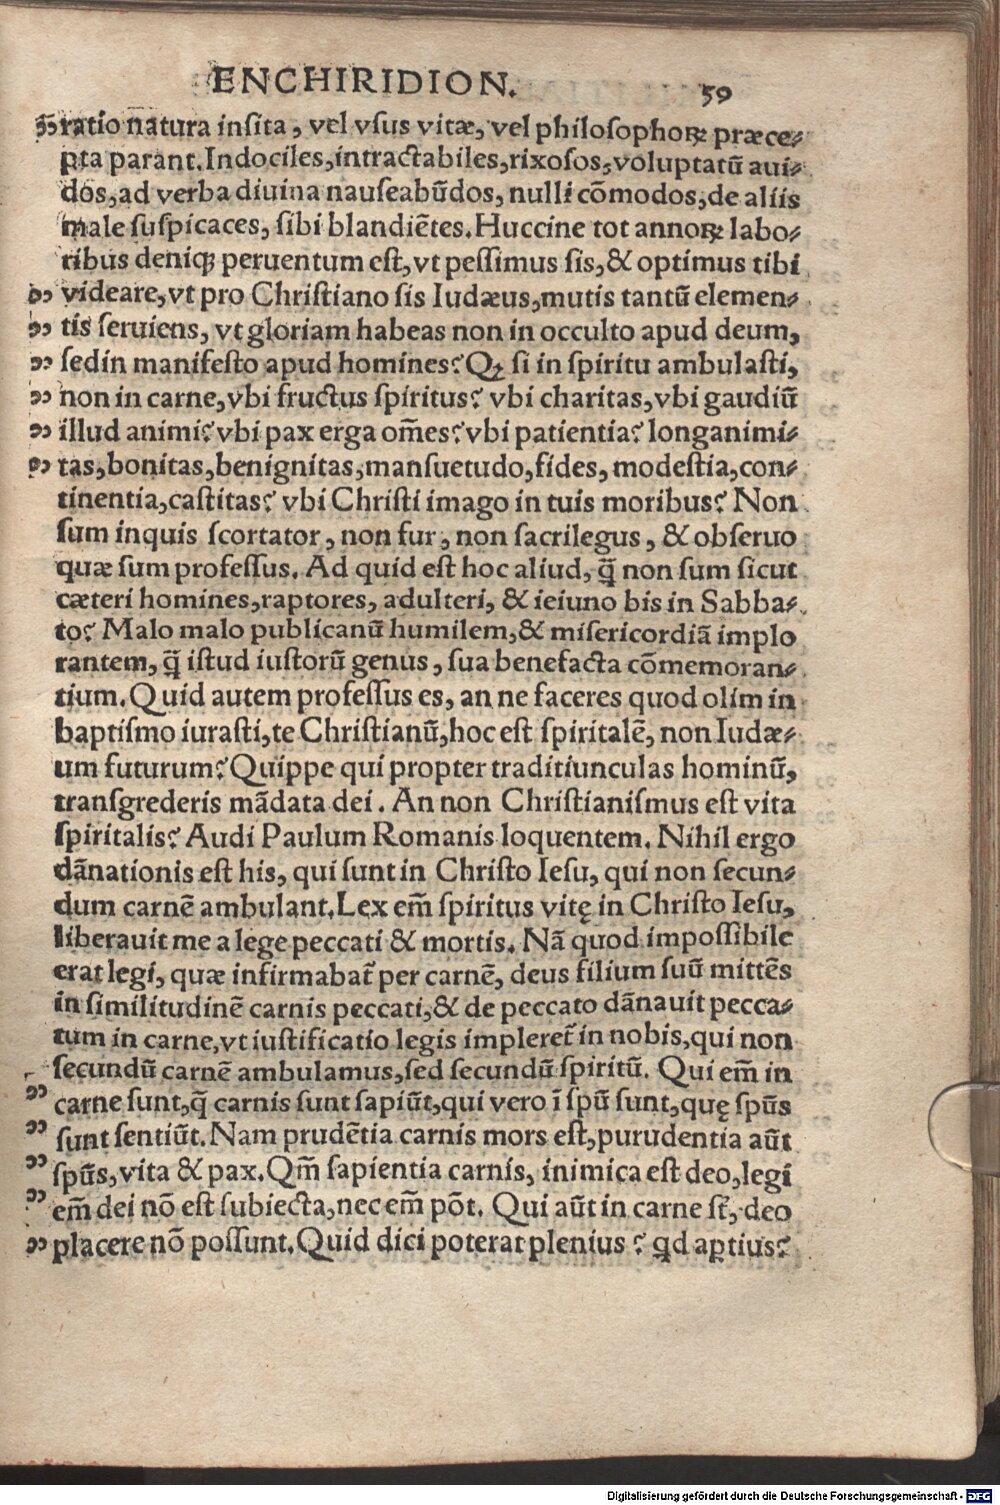 ENCHIRIDION. 59
ratio natura insita, vel vsus vitæ, vel philosophoꝝ præce⸗
pta parant. Indociles, intractabiles, rixosos, voluptatū aui⸗
dos, ad verba diuina nauseabūdos, nulli cōmodos, de aliis
male suspicaces, sibi blandiētes. Huccine tot annoꝝ labo⸗
ribus deniqꝫ peruentum est, vt pessimus sis, & optimus tibi
videare, vt pro Christiano sis Iudæus, mutis tantū elemen⸗
tis seruiens, vt gloriam habeas non in occulto apud deum,
sedin manifesto apud homines? Qꝫ si in spiritu ambulasti,
non in carne, vbi fructus spiritus? vbi charitas, vbi gaudiū
illud animi? vbi pax erga om̄es? vbi patientia? longanimi⸗
tas, bonitas, benignitas, mansuetudo, fides, modestia, con⸗
tinentia, castitas? vbi Christi imago in tuis moribus? Non
sum inquis scortator, non fur, non sacrilegus, & obseruo
quæ sum professus. Ad quid est hoc aliud, q̄ non sum sicut
cæteri homines, raptores, adulteri, & ieiuno bis in Sabba⸗
to? Malo malo publicanū humilem, & misericordiā implo
rantem, q̄ istud iustorū genus, sua benefacta cōmemoran⸗
tium. Quid autem professus es, an ne faceres quod olim in
baptismo iurasti, te Christianū, hoc est spiritalē, non Iudæ⸗
um futurum? Quippe qui propter traditiunculas hominū,
transgrederis mādata dei. An non Christianismus est vita
spiritalis? Audi Paulum Romanis loquentem. Nihil ergo
dānationis est his, qui sunt in Christo Iesu, qui non secun⸗
dum carnē ambulant. Lex em̄ spiritus vitę in Christo Iesu,
liberauit me a lege peccati & mortis. Nā quod impossibile
erat legi, quæ infirmabat᷑ per carnē, deus filium suū mittēs
in similitudinē carnis peccati, & de peccato dānauit pecca⸗
tum in carne, vt iustificatio legis impleret᷑ in nobis, qui non
secundū carnē ambulamus, sed secundū spiritū. Qui em̄ in
carne sunt, q̄ carnis sunt sapiūt, qui vero ī spū sunt, quę spūs
sunt sentiūt. Nam prudētia carnis mors est, purudentia aūt
spūs, vita & pax. Qm̄ sapientia carnis, inimica est deo, legi
em̄ dei nō est subiecta, nec em̄ pōt. Qui aūt in carne st̄, deo
placere nō possunt. Quid dici poterat plenius? qd aptius?
Digitalisierung gefördert durch die Deutsche Forschungsgemeinschaft - DFG